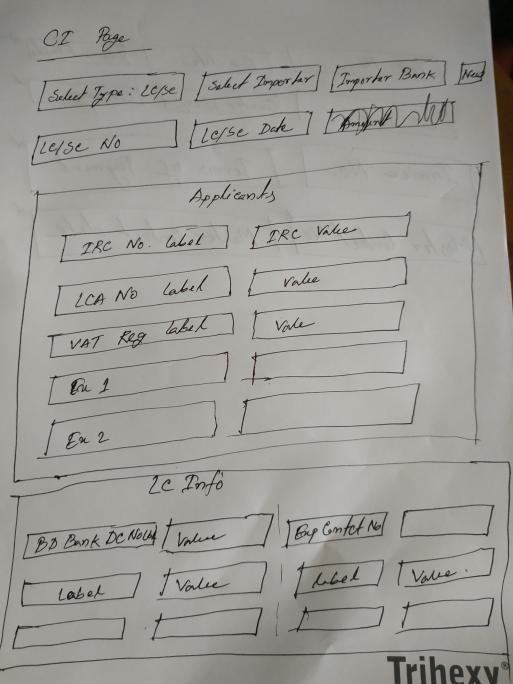 CI Page
Select Type: LC/SC Select Importer Importer Bank New
LC/SC No LC/SC Date
Applicants
IRC No. Label IRC Value
LCA No Label Value
VAT Reg Label Value
Ex 1
Ex 2
LC Info
BD Bank DC No Value Exp Contct No
Label Value Label Value.
Trihexy®